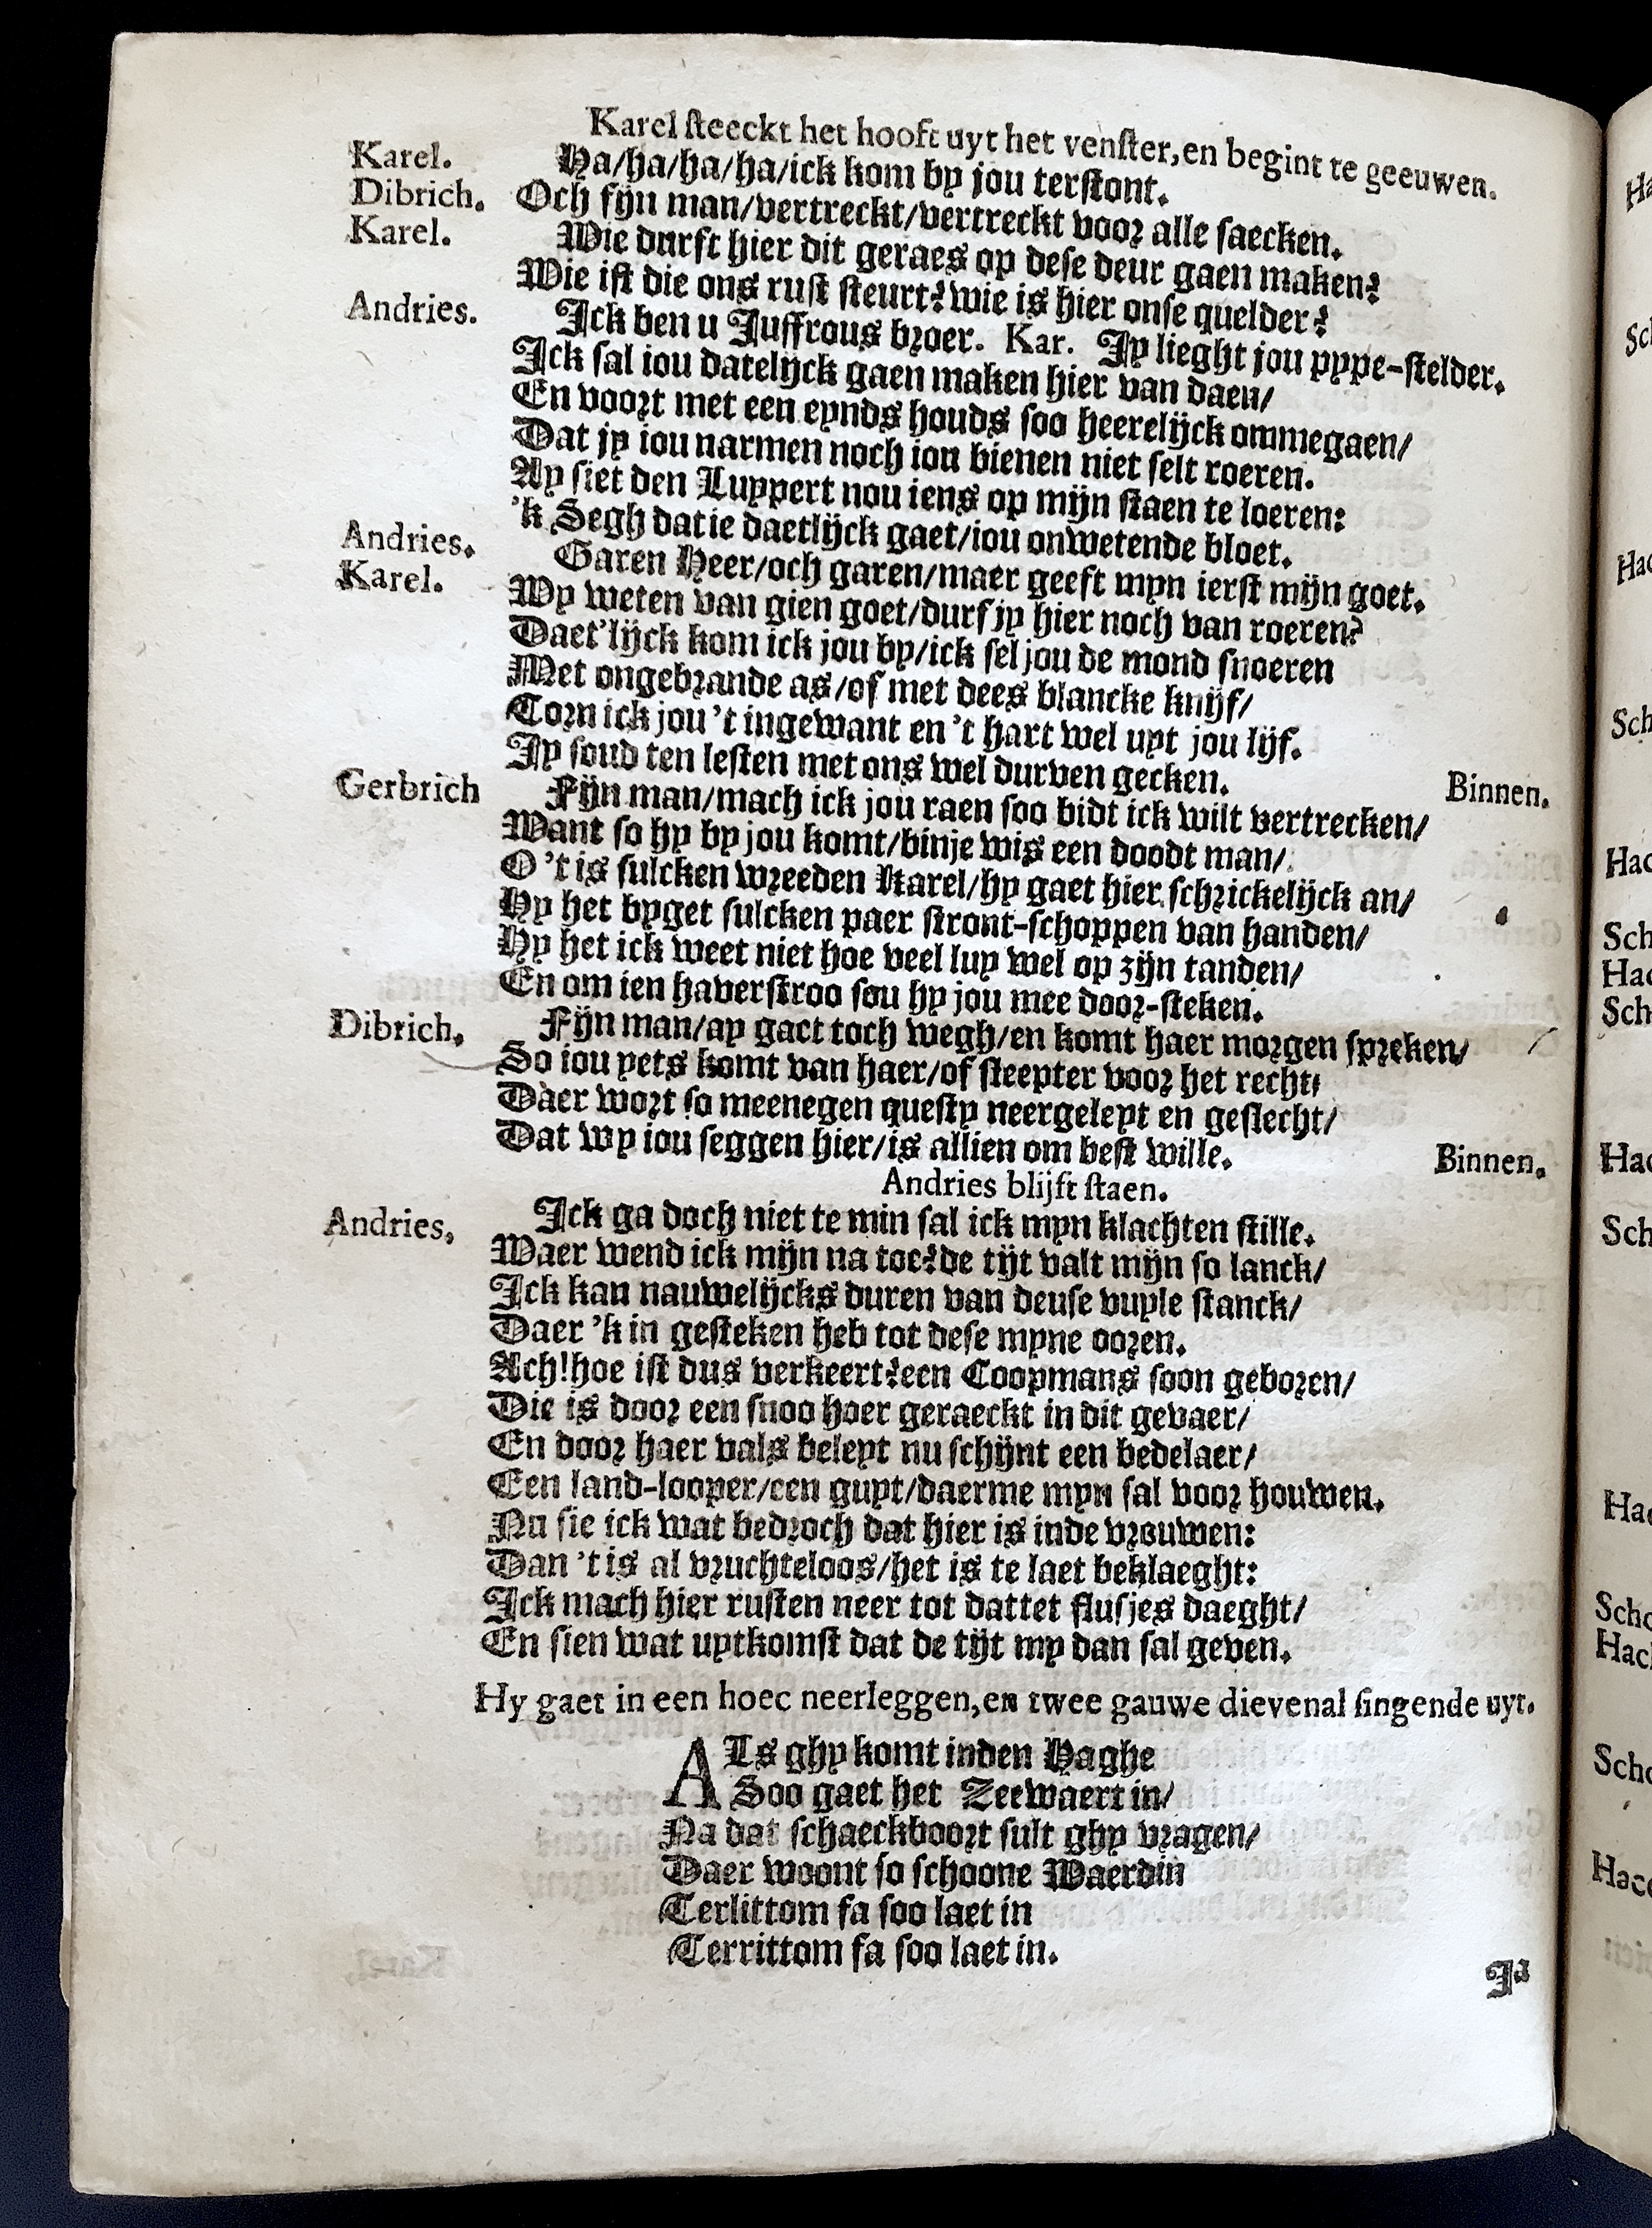 Karel ſteeckt het hooft uyt het venſter, en begint te geeuwen.
Karel. Ha/ha/ha/ha/ick kom by jou terſtont.
Dibrich. Och fijn man/vertreckt/vertreckt voor alle ſaecken.
Karel. Wie durft hier dit geraes op deſe deur gaen maken?
Wie iſt die ons ruſt ſteurt? wie is hier onſe quelder?
Andries. Ick ben u Juffrous broer. Kar. Jy lieght jou pype-ſtelder.
Ick ſal iou datelijck gaen maken hier van daen/
En voort met een eynds houds ſoo heerelijck ommegaen/
Dat jy iou narmen noch iou bienen niet ſelt roeren.
Ay ſiet den Luyppert nou iens op mijn ſtaen te loeren:
'k Segh datie daetlijck gaet/iou onwetende bloet.
Andries. Garen Heer/och garen/maer geeft myn ierſt mijn goet.
Karel. Wy weten van gien goet/durf jy hier noch van roeren?
Daet'lijck kom ick jou by/ick ſel jou de mond ſnoeren
Met ongebrande as/of met dees blancke knijf/
Torn ick jou 't ingewant en 't hart wel uyt jou lijf.
Jy ſoud ten leſten met ons wel durven gecken. Binnen.
Gerbrich Fijn man/mach ick jou raen ſoo bidt ick wilt vertrecken/
Want ſo hy by jou komt/binje wis een doodt man/
O 't is ſulcken wreeden Karel/hy gaet hier ſchrickelijck an/
Hy het byget ſulcken paer ſtront-ſchoppen van handen/
Hy het ick weet niet hoe veel luy wel op zijn tanden/
En om ien haverſtroo ſou hy jou mee door-ſteken.
Dibrich. Fijn man/ay gaet toch wegh/en komt haer morgen ſpreken/
So iou yets komt van haer/of ſteepter voor het recht/
Daer wort ſo meenegen queſty neergeleyt en geſlecht/
Dat wy iou ſeggen hier/is allien om beſt wille. Binnen.
Andries blijft ſtaen.
Andries. Ick ga doch niet te min ſal ick myn klachten ſtille.
Waer wend ick mijn na toe? de tijt valt mijn ſo lanck/
Ick kan nauwelijcks duren van deuſe vuyle ſtanck/
Daer 'k in geſteken heb tot deſe myne ooren.
Ach! hoe iſt dus verkeert? een Coopmans ſoon geboren/
Die is door een ſnoo hoer geraeckt in dit gevaer/
En door haer vals beleyt nu ſchijnt een bedelaer/
Een land-looper/een guyt/daerme myn ſal voor houwen.
Nu ſie ick wat bedroch dat hier is inde vrouwen:
Dan 't is al vruchteloos/het is te laet beklaeght:
Ick mach hier ruſten neer tot dattet fluſjes daeght/
En ſien wat uytkomſt dat de tijt my dan ſal geven.
Hy gaet in een hoec neerleggen, en twee gauwe dievenal ſingende uyt.
ALs ghy komt inden Haghe
Soo gaet het Zeewaert in/
Na dat ſchaeckboort ſult ghy vragen/
Daer woont ſo ſchoone Waerdin
Terlittom fa ſoo laet in
Territtom fa ſoo laet in.
Ja